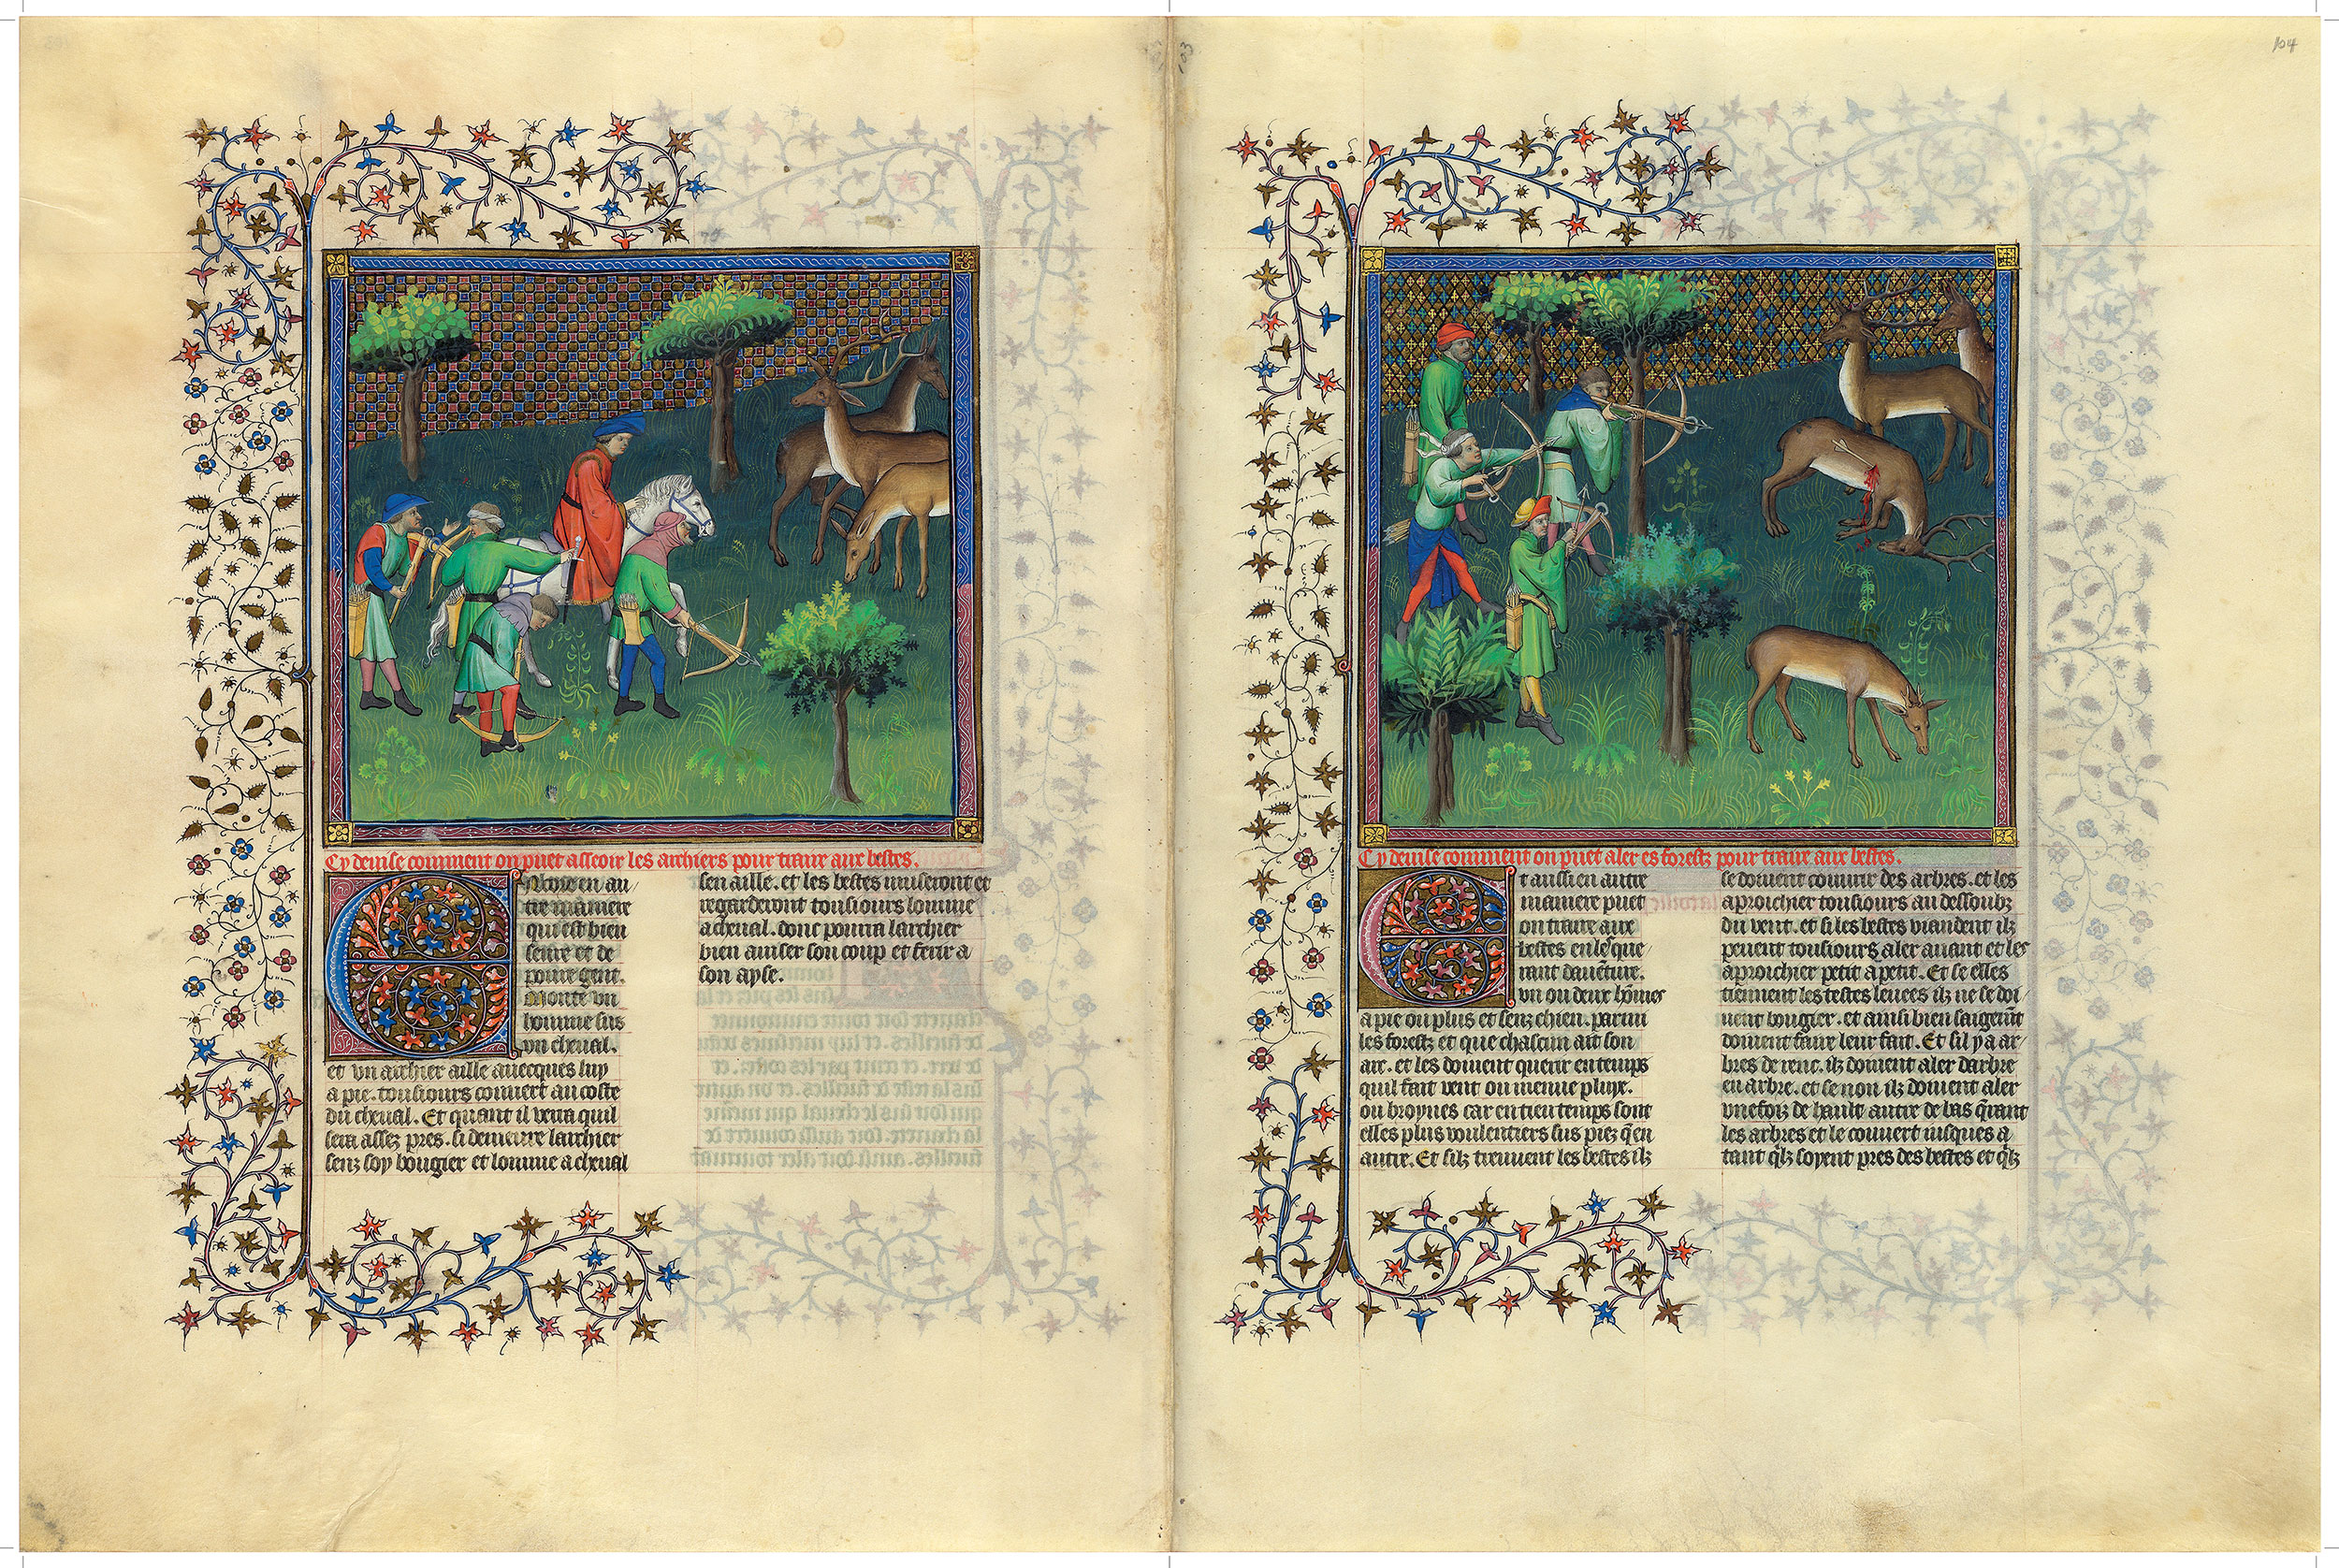 104
Cy deuise comment on puet asseoir les archiers pour traire aux bestes.
Ncore en au
tre maniere
qui est bien
seure et de
poure gent.
Monte vn
homme sus
vn cheual.
et vn archier aille auecques luy
a pie. tousiours couuert au coste
du cheual. Et quant il verra quil
sera assez pres. si demeure larchier
senz soy bougier et lomme a cheual
sen aille. et les bestes museront et
regarderont tousiours lomme
a cheual. donc pourra larchier
bien auiser son coup et ferir a
son ayse.
Cy deuise comment on puet aler es forestz pour traire aux bestes.
t aussi en autre
maniere puet
on traire aux
bestes en le que
rant dauēture.
vn ou deux hōmes
a pie ou plus et senz chien. parmi
les forestz et que chascun ait son
arc. et les doiuent querir en temps
quil fait vent ou menue pluye.
ou broynes car en tieu temps sont
elles plus voulentiers sus piez q̄ en
autre. Et silz treuuent les bestes ilz
se doiuent couurir des arbres. et les
aprouchier tousiours au dessoubz
du vent. et si les bestes viandent ilz
peuent tousiours aler auant et les
aprouchier petit a petit. Et se elles
tiennent les testes leuees ilz ne se doi
uent bougier. et ainsi bien saigemt̄
doiuent faire leur fait. Et sil y a ar
bres de renc. ilz doiuent aler darbre
en arbre. et se non ilz doiuent aler
vne foiz de hault autre de bas q̄rant
les arbres et le couuert iusques a
tant qlz soyent pres des bestes et qlz